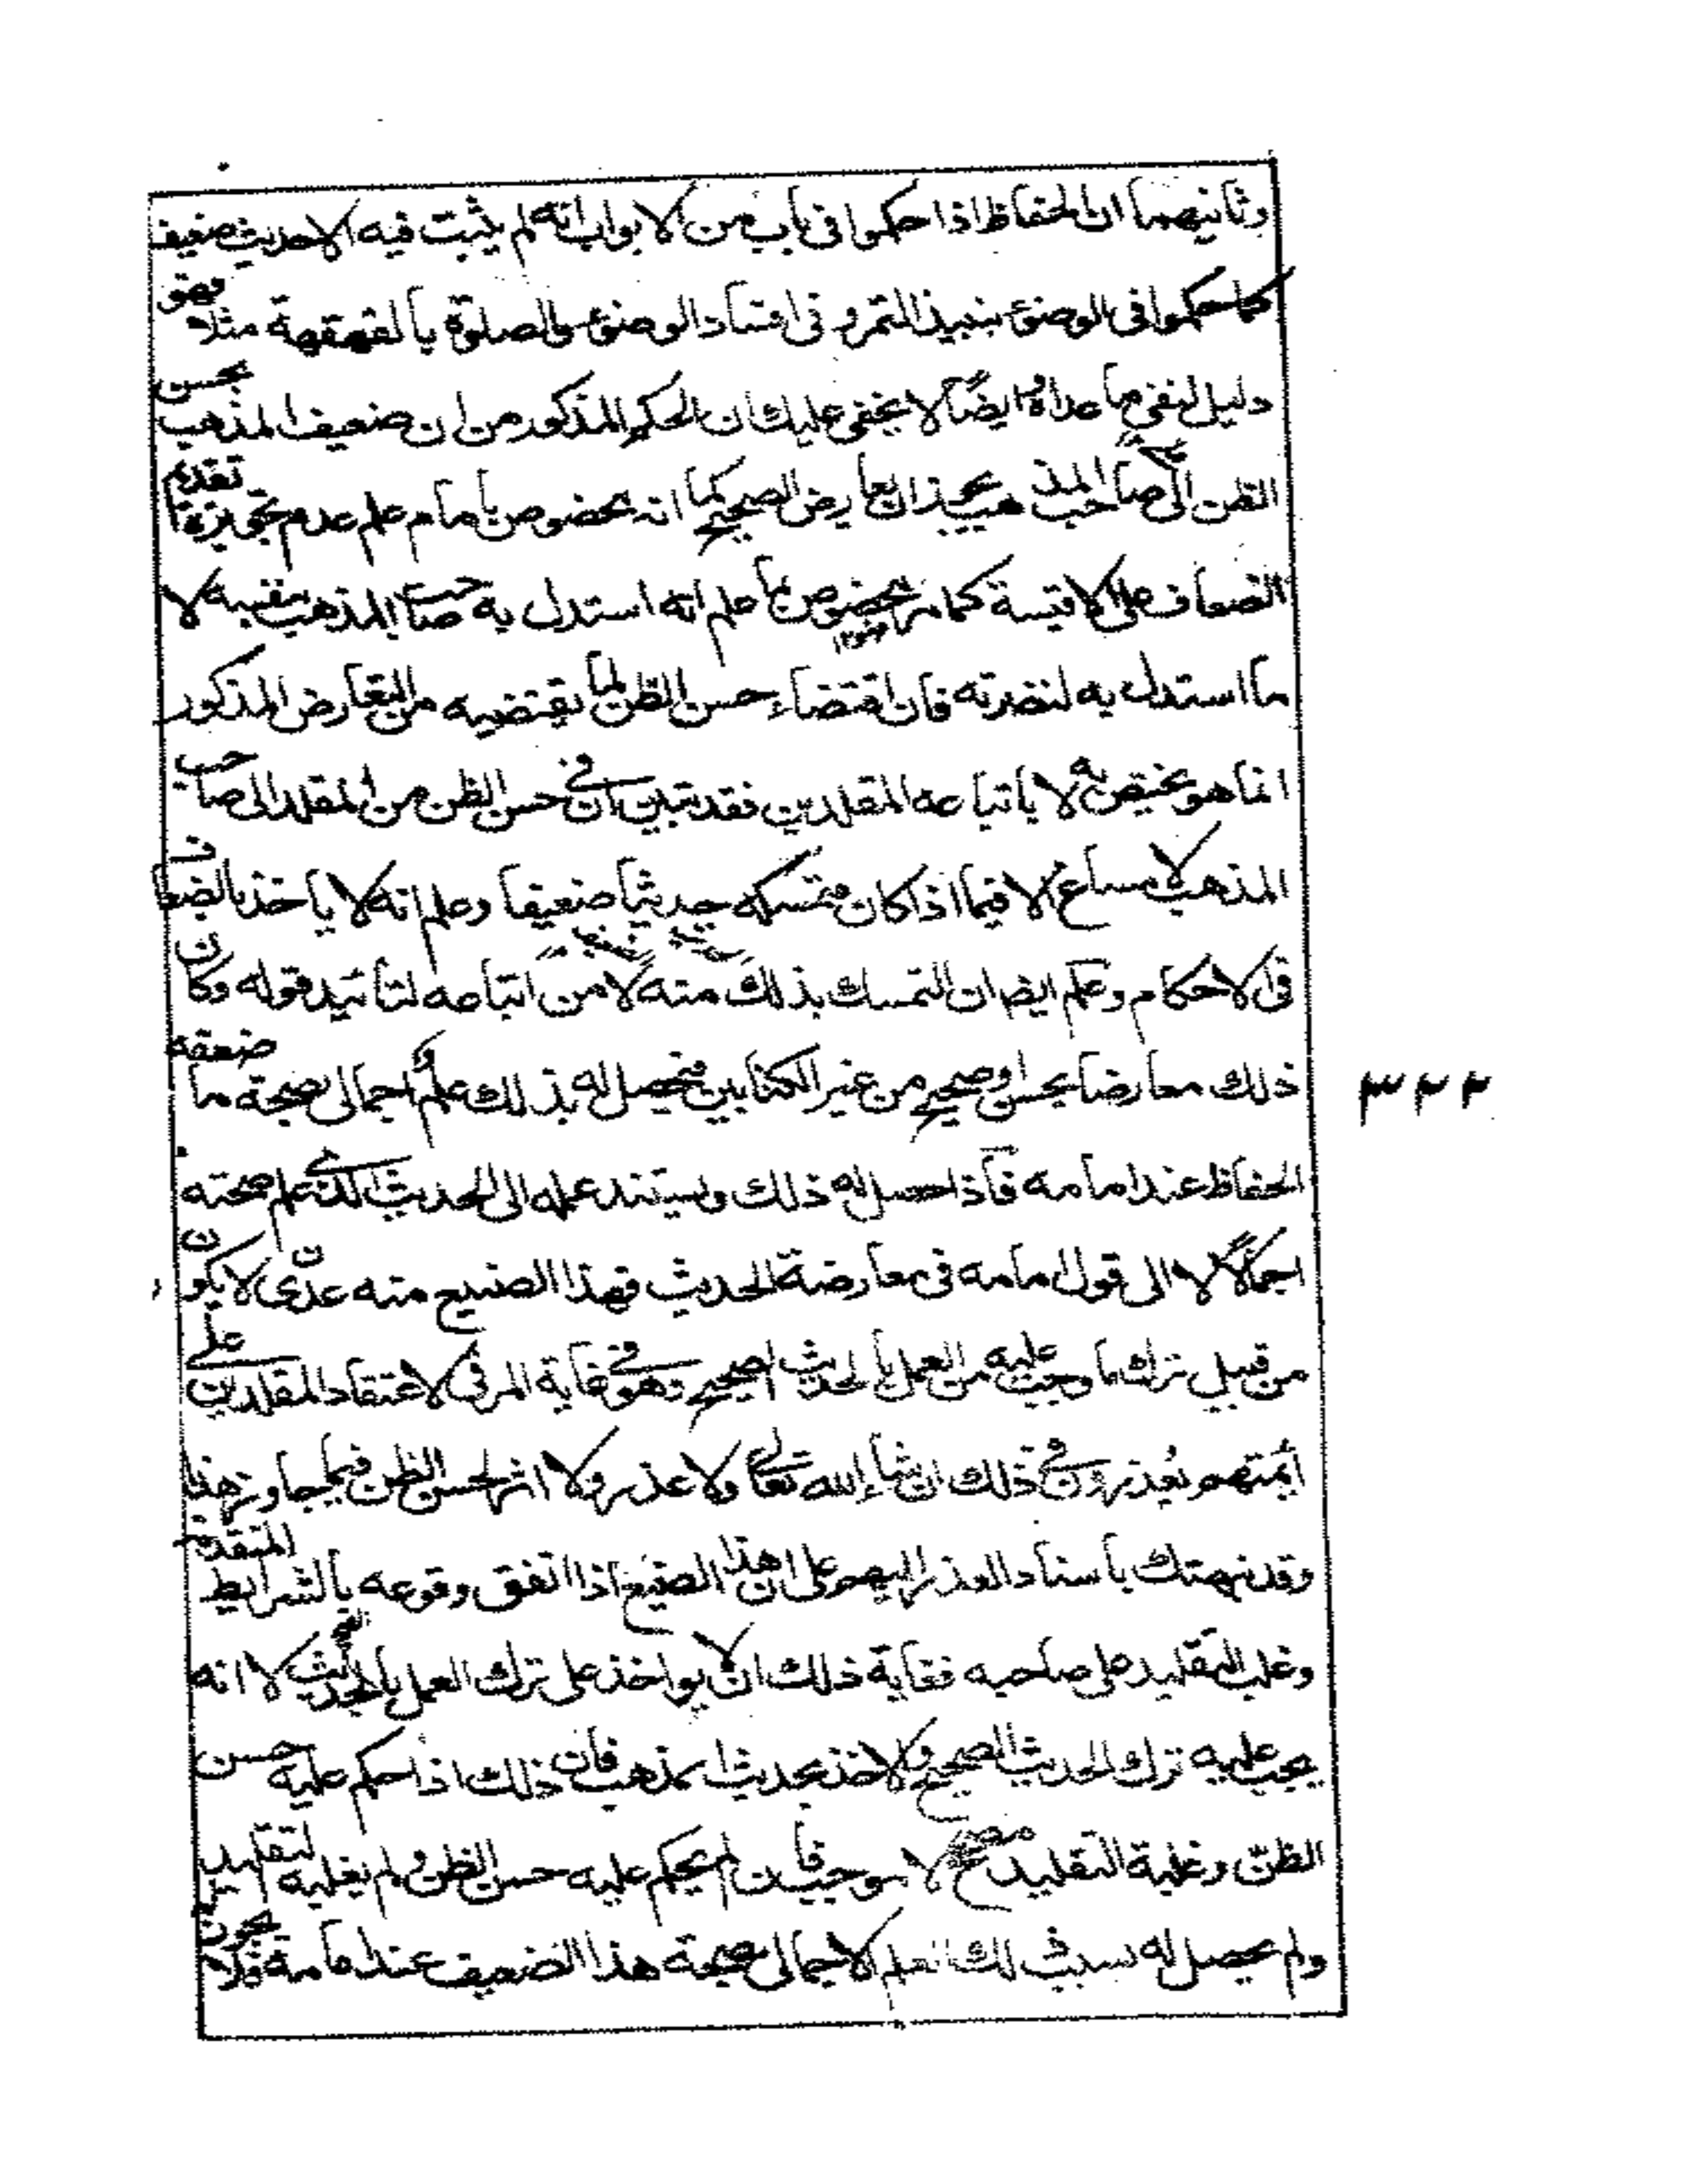 وثانيهما ان الحفاظ اذا حكموا فى باب من الابواب انه لم يثبت فيه الاحديث ضعيف
كما حكموا فى الوضوء بنبيذ التمر و فى افساد الوضوء والصلوة بالقهقهة مثلا فهو
دليل لنفى ما عداه وايضًا لا يخفى عليك ان الحكم المذكور من ان ضعيف المذهب بحسن
الظن الى صاحب المذهب يعارض الصحيح كما انه مخصوص بامام علم عدم تجويزه تقديم
الضعاف على الاقيسة كما مر مخصوص بما علم انه استدل به صاحب المذهب بنفسه لا
ما استدل به لنصرته فان اقتضاء حسن الظن لما يقتضيه من التعارض المذكور
انما هو يختص به لا باتباعه المقلدين فقد تبين ان فى حسن الظن من المقلد الى صاحب
المذهب لا مساغ الا فيما اذا كان متمسكه حديثا ضعيفا وعلم انه لا ياخذ بالضعاف
فى الاحكام وعلم ايضا ان التمسك بذلك منه لا من اتباعه لتائيد قوله وكان
ذلك معارضا بحسن او صحيح من غير الكتابين فيحصل له بذلك علم اجمالى بصحة ما ضعفه
الحفاظ عند امامه فاذا حصل له ذلك ويستند عمله الى الحديث الذى علم صحته
اجمالا لا الى قول امامه فى معارضة الحديث فهذا الصنيع منه عدّى لا يكون
من قبيل ترك ما وجب عليه من العمل بالحديث الصحيح وهو فى غاية المرقى لاعتقاد المقلدين على
ائمتهم يعذرون فى ذلك ان شاء الله تعالى ولا عذر ولا اثر لحسن الظن فيما جاوز هذا
وقد نبهتك باسناد العذر اليهم على ان هذا الصنيع اذا اتفق وقوعه بالشرايط المتقدمة
وغلب التقليد على صاحبه فغاية ذلك ان لا يواخذ على ترك العمل بالحديث الصحيح لا انه
يجب عليه ترك الحديث الصحيح والاخذ بحديث المذهب فان ذلك اذا حكم عليه حسن
الظنّ وغلبة التقليد مصحح لا موجب فان لم يحكم عليه حسن الظن ولم يغلبه التقليد
ولم يحصل له بسبب ذلك العلم الاجمالى بصحة هذا الضعيف عند امامه فلا يجوز
٣٢٢